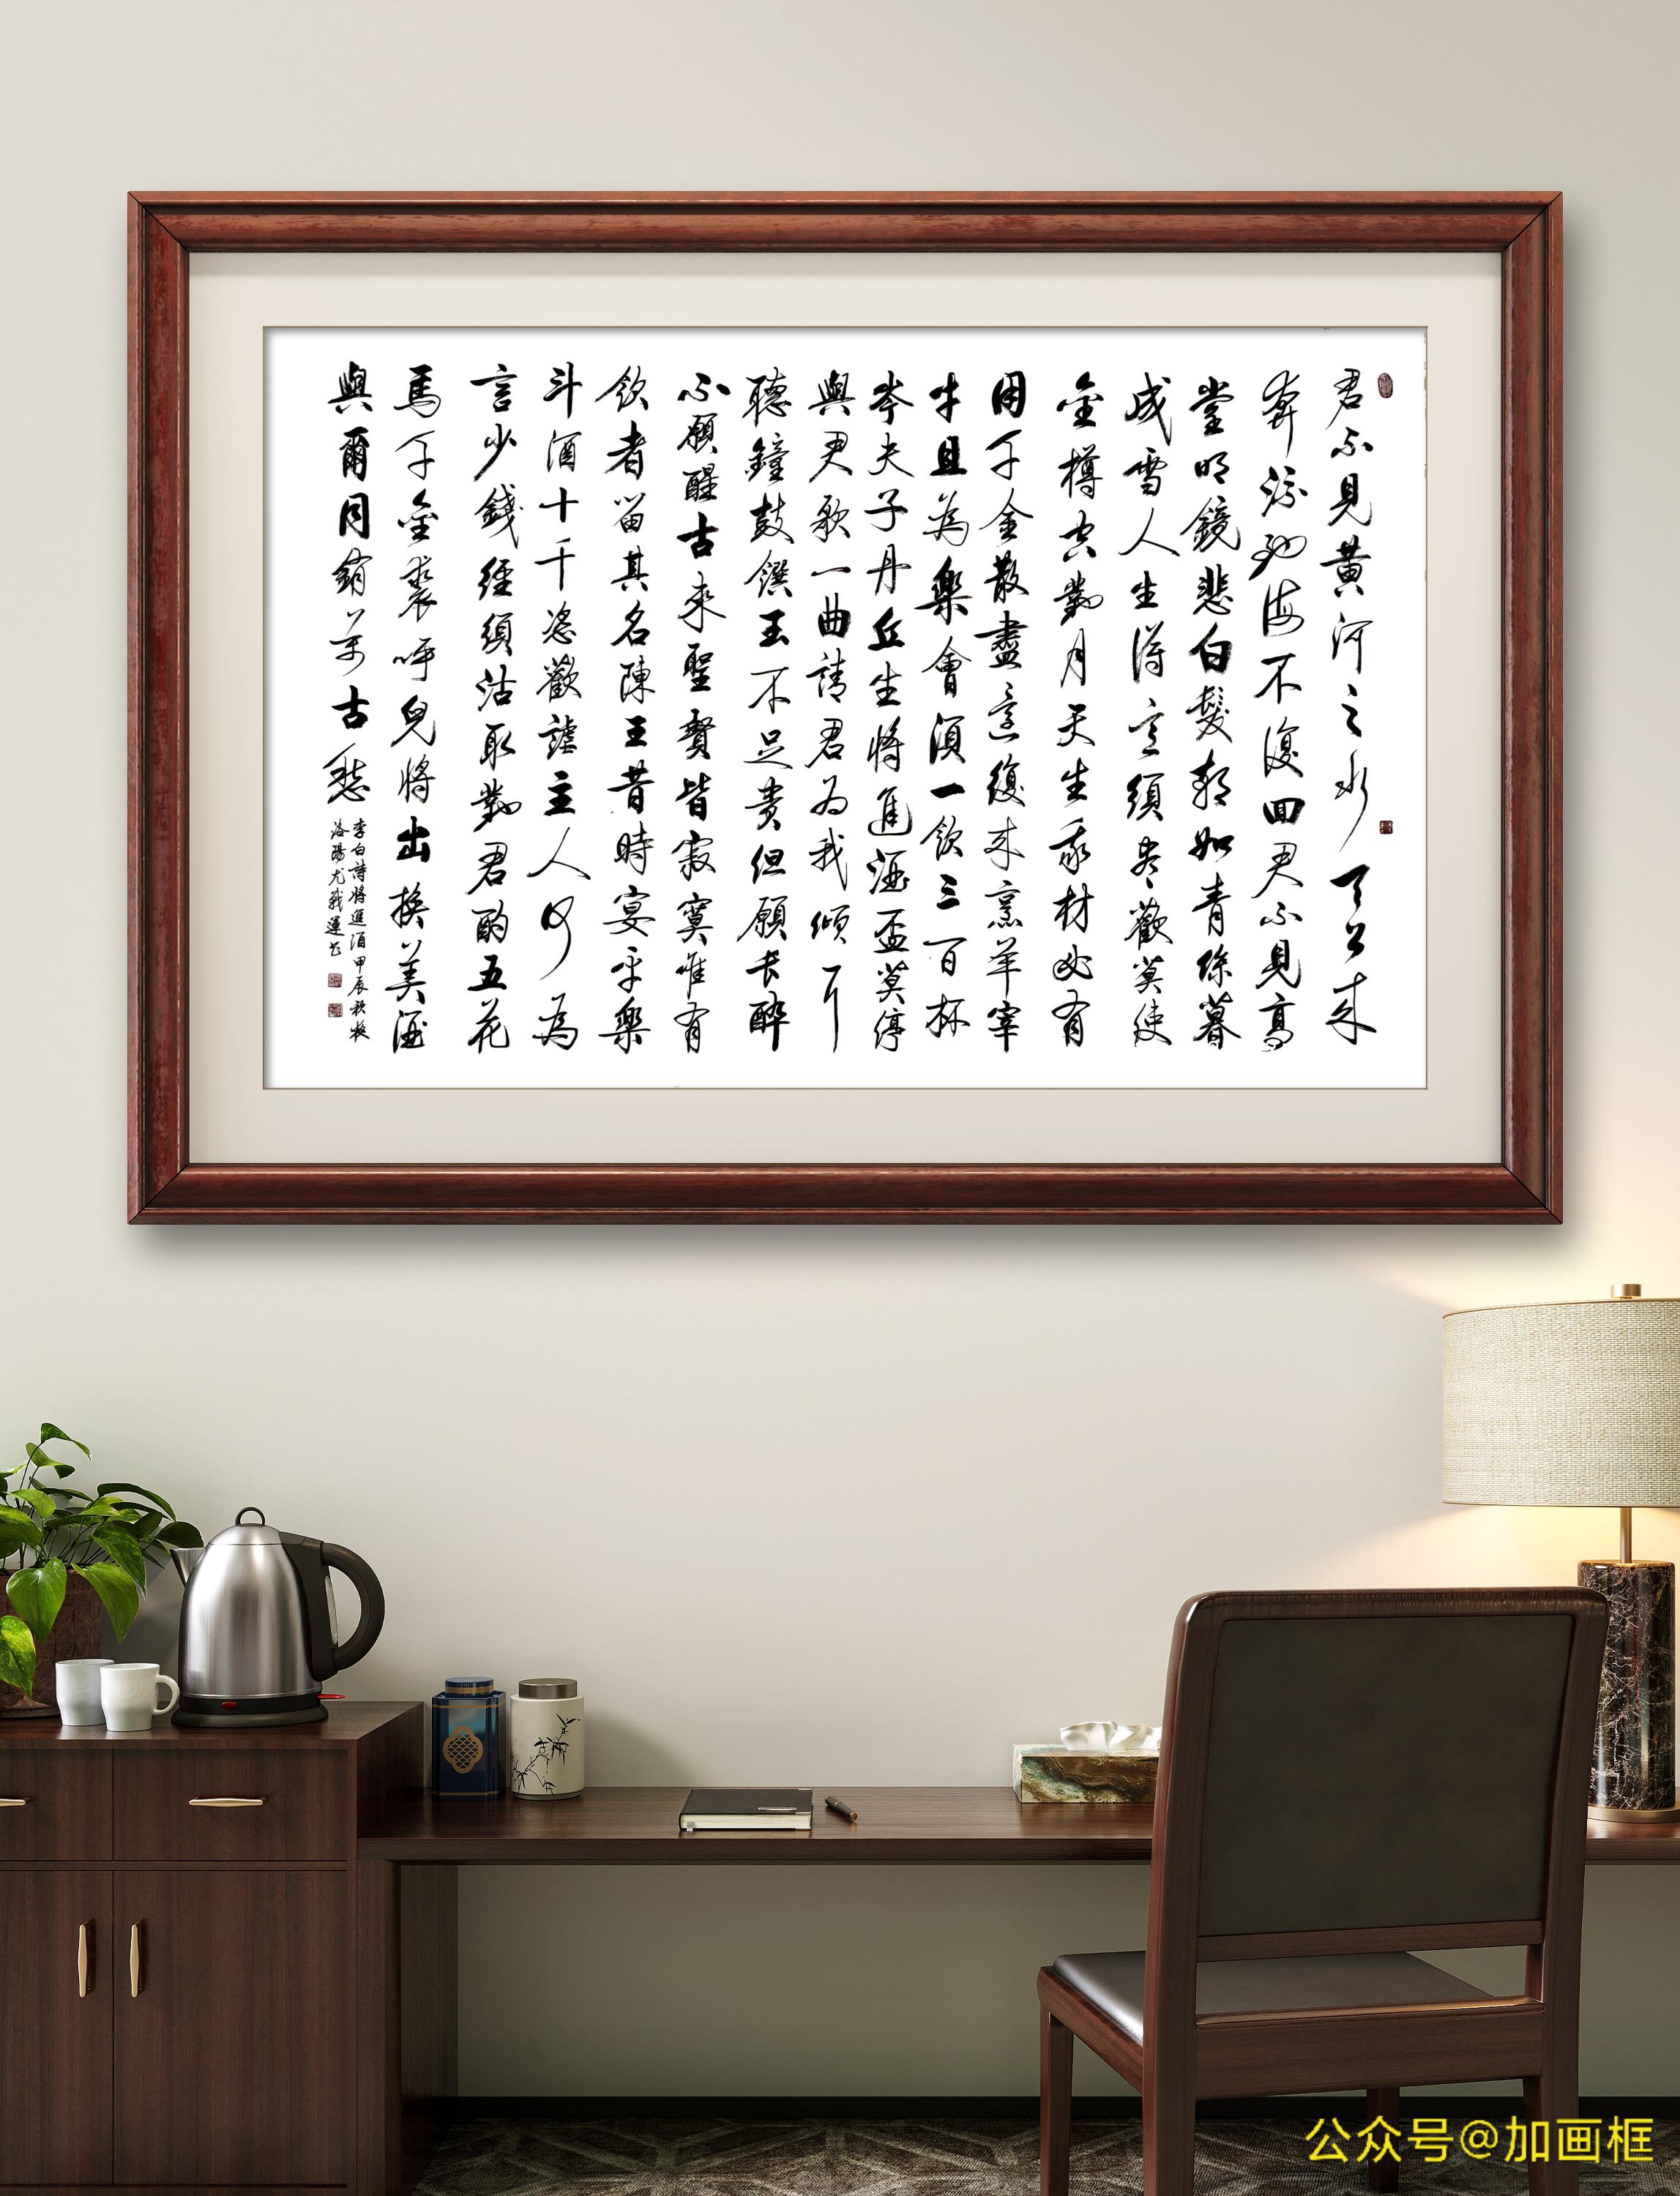 君不見黃河之水天上來
奔流到海不復回君不見高
堂明鏡悲白髮朝如青絲暮
成雪人生得意須盡歡莫使
金樽空對月天生我材必有
用千金散盡還復來烹羊宰
牛且為樂會須一飲三百杯
岑夫子丹丘生將進酒盃莫停
與君歌一曲請君為我傾耳
聽鐘鼓饌玉不足貴但願長醉
不願醒古來聖賢皆寂寞唯有
飲者留其名陳王昔時宴平樂
斗酒十千恣歡謔主人何為
言少錢經須沽取對君酌五花
馬千金裘呼兒將出換美酒
與爾同銷萬古愁
李白詩將進酒甲辰秋
洛陽尤戰運書
公众号@加画框